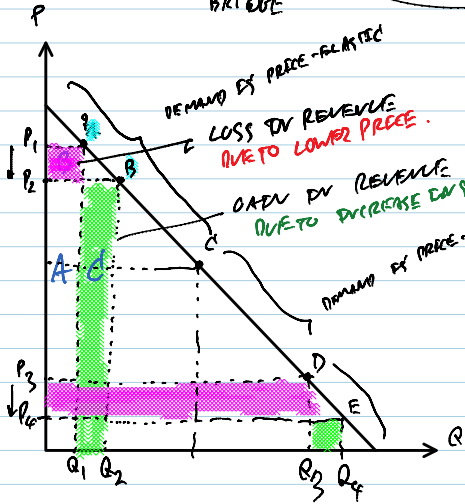 BRIDGE
P
DEMAND IS PRICE-ELASTIC
LOSS IN REVENUE
DUE TO LOWER PRICE.
P1
B
P2
GAIN IN REVENUE
DUE TO INCREASE IN
A C
C
DEMAND IS PRICE-
P3
D
P4
E
Q1 Q2
Q3 Q4
Q